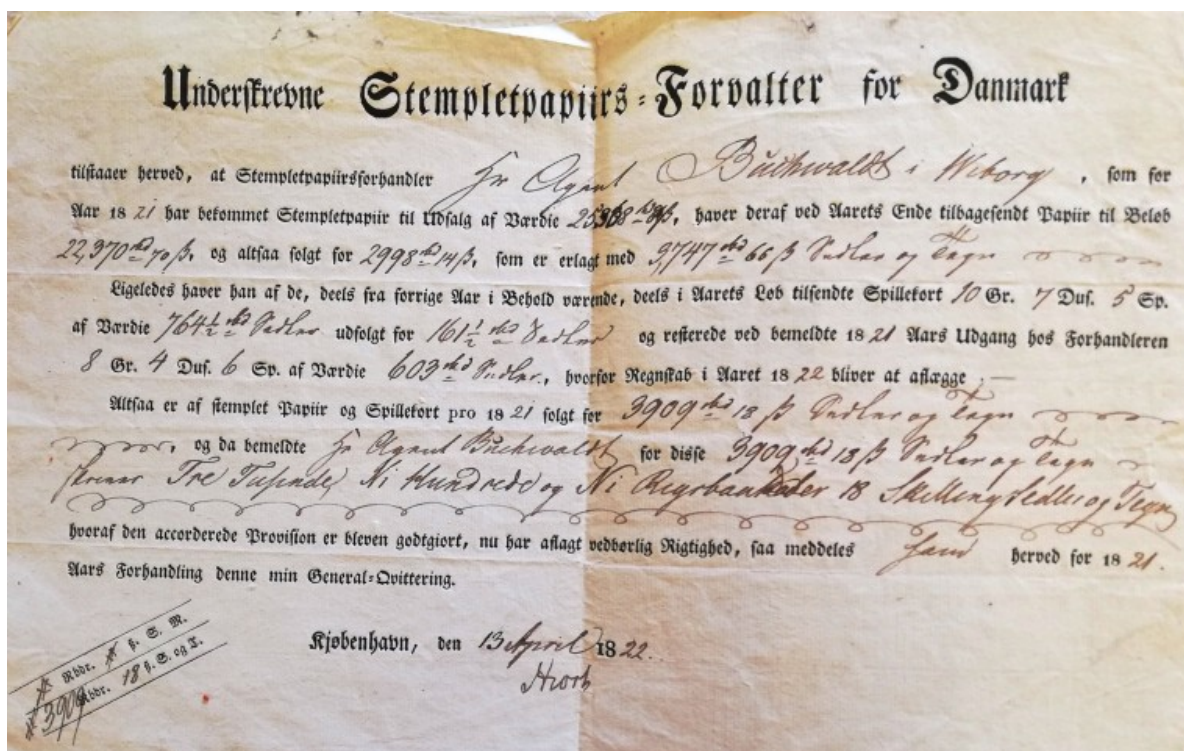 Underskrevne Stempletpapiirs-Forvalter for Danmark
tilstaaer herved, at Stempletpapiirsforhandler Hr Agent Buchwaldt i Wiborg, som for
Aar 1821 har bekommet Stempletpapiir til Udsalg af Værdie 25368 rbd 84 ß, haver deraf ved Aarets Ende tilbagesendt Papiir til Beløb
22,370 rbd 70 ß. og altsaa solgt for 2998 rbd 14 ß, som er erlagt med 3,747 rbd 66 ß Sedler og Tegn
Ligeledes haver han af de, deels fra forrige Aar i Behold værende, deels i Aarets Løb tilsendte Spillekort 10 Gr. 7 Dus. 5 Sp.
af Værdie 764½ rbd Sedler udsolgt for 161½ rbd Sedler og resterede ved bemeldte 1821 Aars Udgang hos Forhandleren
8 Gr. 4 Dus. 6 Sp. af Værdie 603 rbd Sedler, hvorfor Regnskab i Aaret 1822 bliver at aflægge
Altsaa er af stemplet Papiir og Spillekort pro 1821 solgt for 3909 rbd 18 ß Sedler og Tegn
og da bemeldte Hr Agent Buchwaldt for disse 3909 rbd 18 ß Sedler og Tegn
skriver Tre Tusinde, Ni Hundrede og Ni Rigsbankdaler 18 Skilling Sedler og Tegn
hvoraf den accorderede Provision er bleven godtgiort, nu har aflagt vedbørlig Rigtighed, saa meddeles ham herved for 1821.
Aars Forhandling denne min General-Qvittering.
Kjøbenhavn, den 13 April 1822.
Rbdr. ß. S. M.
3909 Rbdr. 18 ß. S. og T.